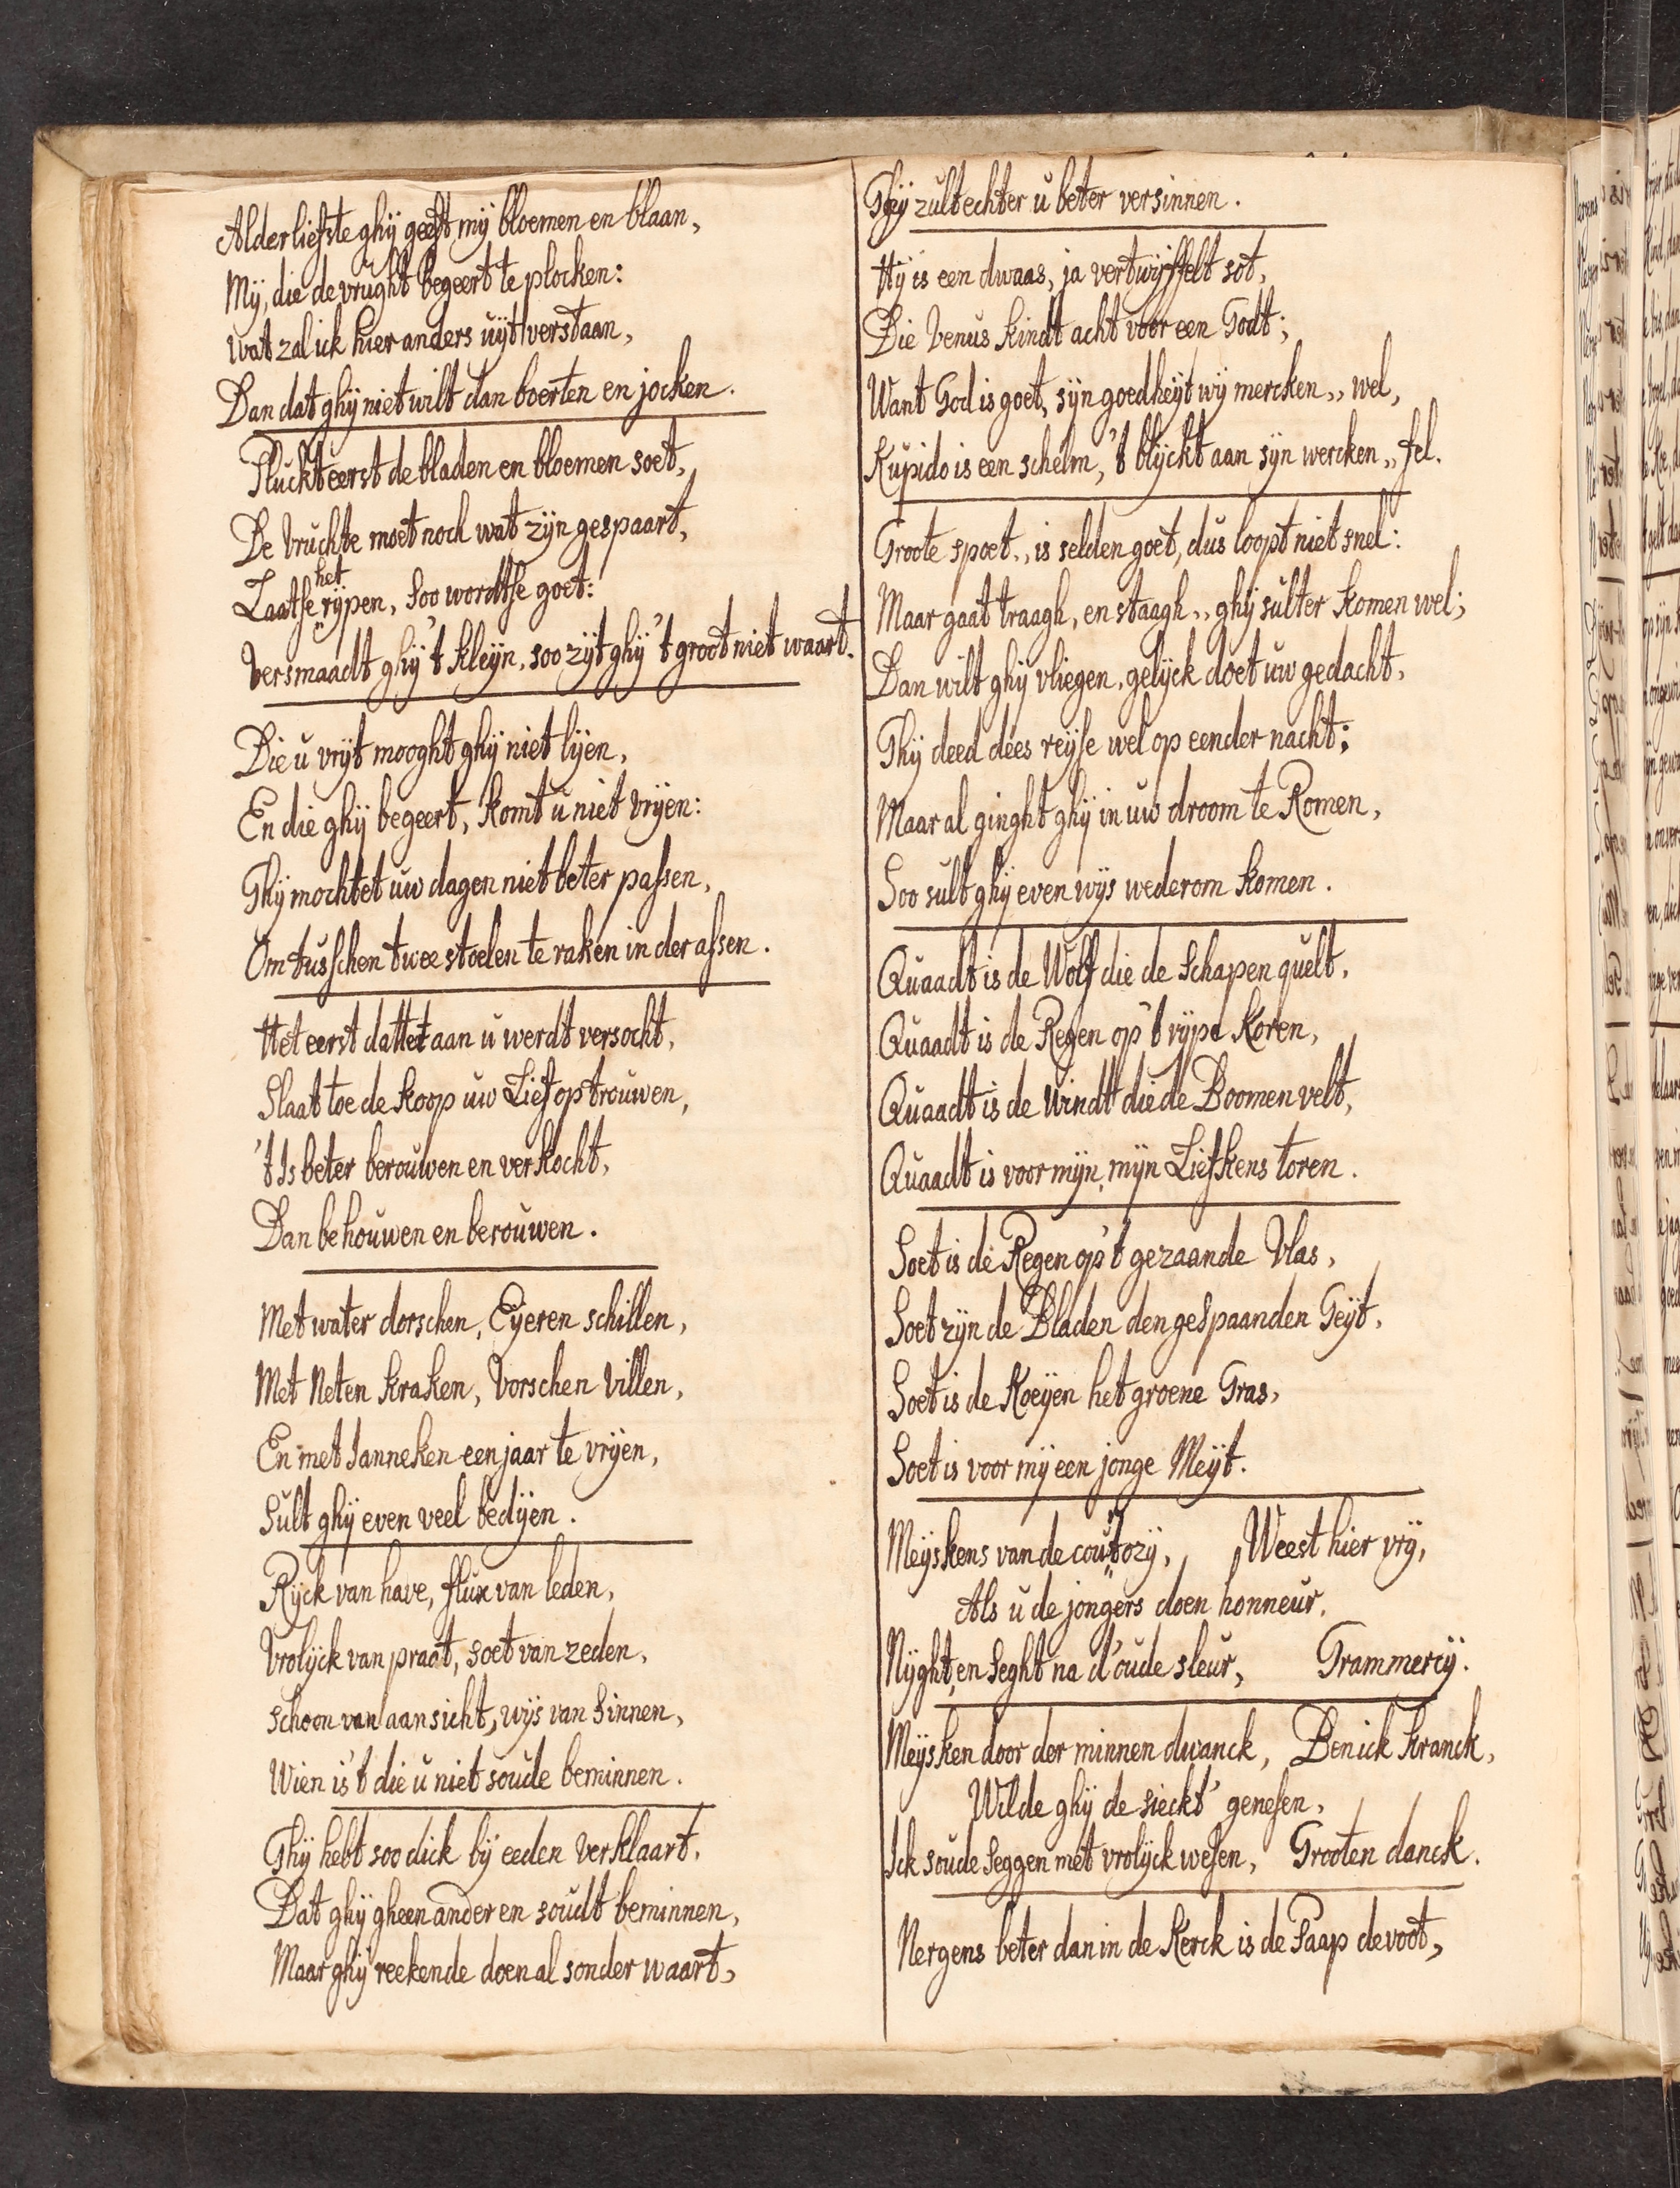 Alderliefste ghÿ geeft mÿ bloemen en blaan,
Mÿ, die de vrught begeert te plocken:
Wat zal ick hier anders uÿt verstaan,
Dan dat ghÿ niet wilt dan boerten en jocken.
Pluckt eerst de bladen en bloemen soet,
De vruchte moet noch wat zÿn gespaart,
Laatse het rÿpen, soo wordtse goet:
Versmaadt ghÿ 't kleÿn, soo zÿt ghÿ 't groot niet waart.
Die u vrÿt mooght ghÿ niet lÿen,
En die ghÿ begeert, komt u niet vrÿen:
Ghÿ mochtet uw dagen niet beter passen,
Om tusschen twee stoelen te raken in der assen.
Het eerst dattet aan u werdt versocht,
Slaat toe de koop uw Lief op trouwen,
't Is beter berouwen en verkocht,
Dan behouwen en berouwen.
Met water dorschen, Eÿeren schillen,
Met Neten kraken, Vorschen villen,
En met Janneken een jaar te vrÿen,
Sult ghÿ even veel bedÿen.
Rÿck van have, flux van leden,
Vrolÿck van praat, soet van zeden,
schoon van aansicht, wÿs van sinnen,
Wien is 't die u niet soude beminnen.
Ghÿ hebt soo dick bÿ eeden verklaart,
Dat ghÿ gheen anderen soudt beminnen,
Maar ghÿ reekende doen al sonder waart,
Ghÿ zult echter u beter versinnen.
Hÿ is een dwaas, ja vertwÿffelt sot,
Die Venus kindt acht voor een Godt;
Want God is goet, sÿn goedheÿt wÿ mercken,, wel,
Kupido is een schelm, 't blÿckt aan sÿn wercken,, fel.
Groote spoet,, is selden goet, dus loopt niet snel:
Maar gaat traagh, en staagh,, ghÿ sulter komen wel;
Dan wilt ghÿ vliegen, gelÿck doet uw gedacht,
Ghÿ deed dees reÿse wel op eender nacht;
Maar al ginght ghÿ in uw droom te Romen,
Soo sult ghÿ even wÿs wederom komen.
Quaadt is de Wolf die de Schapen quelt,
Quaadt is de Regen op 't rÿpe Koren,
Quaadt is de Windt die de Boomen velt,
Quaadt is voor mÿn, mÿn Liefkens toren.
Soet is de Regen op 't gezaande Vlas,
Soet zÿn de Bladen den gespaanden Geÿt,
Soet is de Koeÿen het groene Gras,
Soet is voor mÿ een jonge Meÿt.
Meÿskens van de courtozÿ, Weest hier vrÿ,
Als u de jongers doen honneur,
Nÿght, en seght na d'oude sleur, Grammercÿ.
Meÿsken door der minnen dwanck, Ben ick kranck,
Wilde ghÿ de sieckt' genesen,
Ick soude seggen met vrolÿck wesen, Grooten danck.
Nergens beter dan in de Kerck is de Paap devoot,